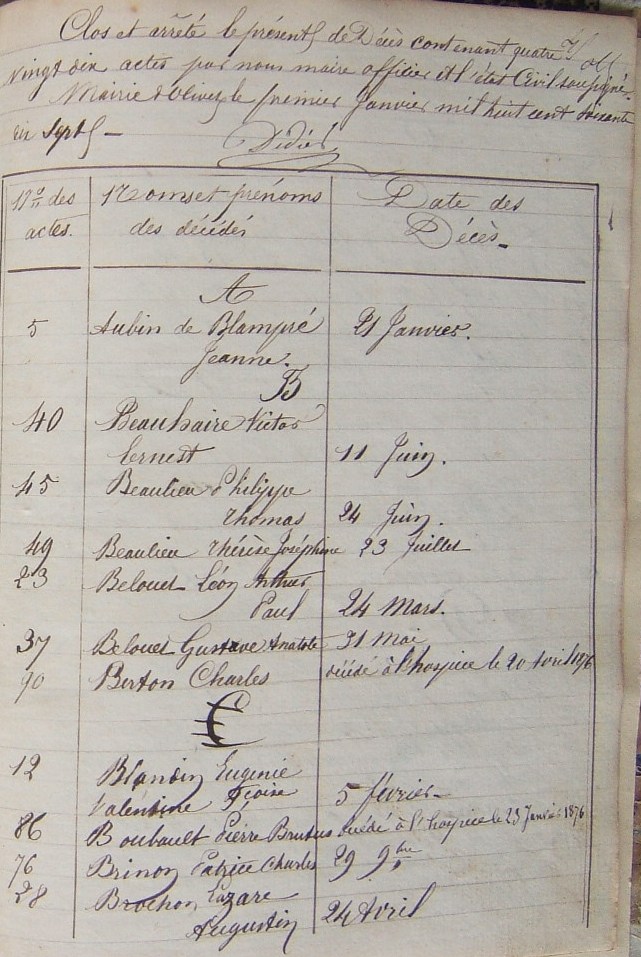 Clos et arrêté le présent de Décès contenant quatre
vingt dix actes par nous maire officier de l'état Civil soussigné
Mairie d'Olivet le premier Janvier mil huit cent soixante
dix Sept
Didier
Nos des actes.
Noms et prénoms des décédés
Date des Décès
A
5 Aubin de Blampré 21 Janvier.
Jeanne.
B
40 Beauhaire Victor
Ernest 11 Juin.
45 Beaulieu Philippe
Thomas 24 Juin.
49 Beaulieu Thérèse Joséphine 23 Juillet
23 Belouet Léon Arthur
Paul 24 Mars.
37 Belouet Gustave Anatole 31 Mai
90 Berton Charles décédé à l'hospice le 20 Avril 1876
C
12 Blandin Eugenie
Valentine 5 février
86 Boubault Pierre Brutus décédé à l'hospice le 23 Janvier 1876
76 Brinon Patrice Charles 29 9bre
28 Brochon Lazare
Augustin 24 Avril